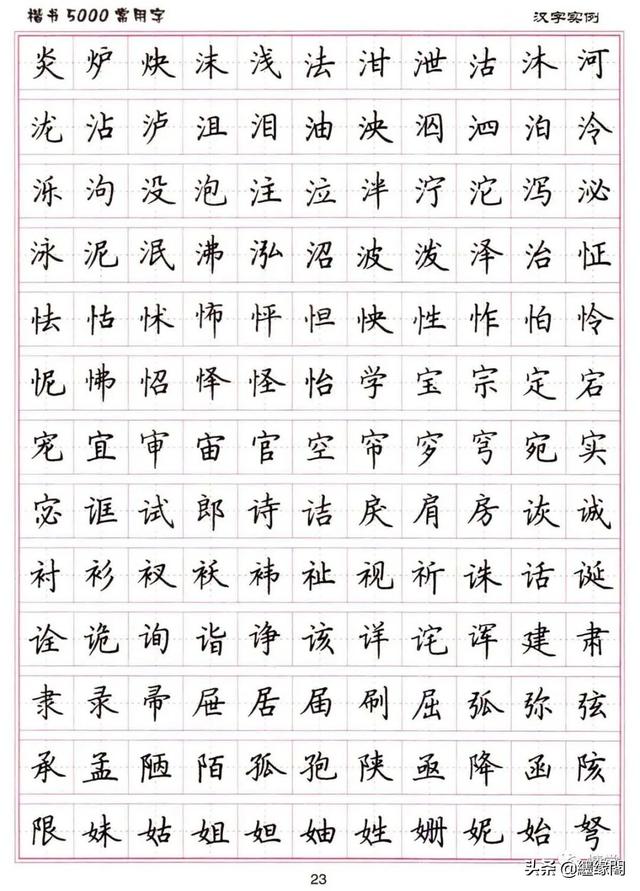 楷书5000常用字 汉字实例
炎炉炔沫浅法泔泄沽沐河
泷沾泸沮泪油泱泅泗泊泠
泺泃没泡注泣泮泞沱泻泌
泳泥泯沸泓沼波泼泽治怔
怯怙怵怖怦怛怏性怍怕怜
怩怫怊怿怪怡学宝宗定宕
宠宜审宙官空帘穸穹宛实
宓诓试郎诗诘戾肩房诙诚
衬衫衩袄袆祉视祈诛话诞
诠诡询诣诤该详诧诨建肃
隶录帚屉居届刷屈弧弥弦
承孟陋陌孤孢陕亟降函陔
限妹姑姐妲妯姓姗妮始驽
23
头条@缠缘阁